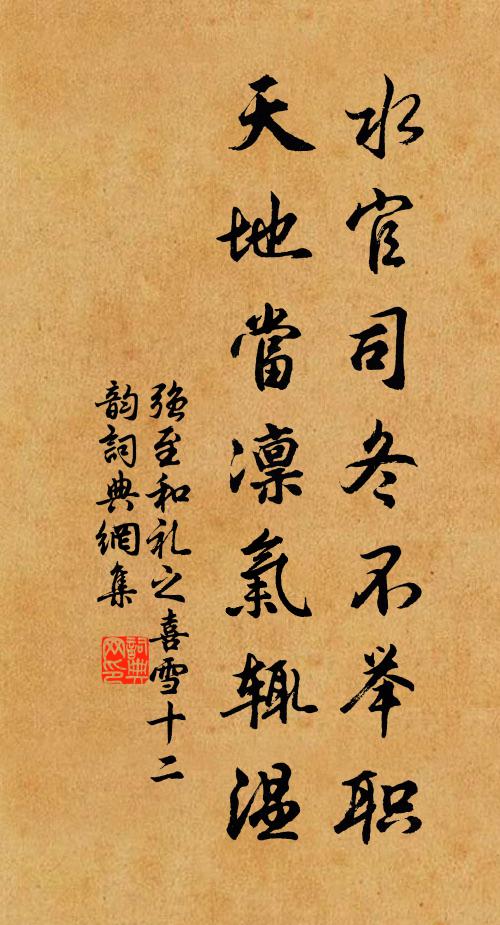 水官司冬不举职
天地當凛氣辄温
强至和礼之喜雪十二
韵詞典網集
詞典
网印